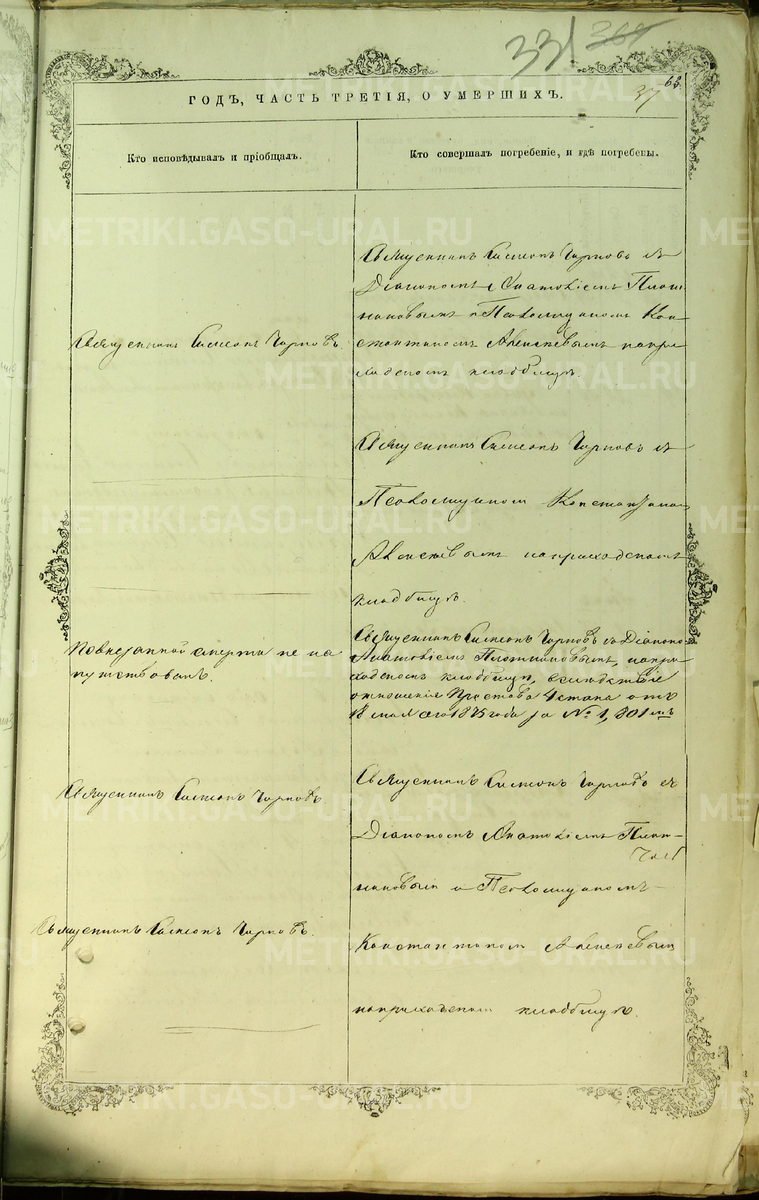 331
63.
37
ГОДЪ, ЧАСТЬ ТРЕТІЯ, О УМЕРШИХЪ.
Кто исповѣдывалъ и пріобщалъ.
Кто совершалъ погребеніе, и гдѣ погребены.
Священникъ Симеонъ Чирковъ
Священникъ Симеонъ Чирковъ съ
Діакономъ Анатоліемъ Плот-
никовымъ и Псаломщикомъ Кон-
стантиномъ Алексѣевымъ на при-
ходскомъ кладбищѣ.
Священникъ Симеонъ Чирковъ съ
Псаломщикомъ Константином
Алексѣевымъ на приходскомъ
кладбищѣ.
По внезапной смерти не на
путствованъ.
Священникъ Симеонъ Чирковъ съ Діакono
Анатоліемъ Плотниковымъ, на при-
ходскомъ кладбищѣ, вслѣдствіе
отношенія Пристава 4 стана отъ
18 мая сего 1875 года за № 1,801мъ
Священникъ Симеонъ Чирковъ
Священникъ Симеонъ Чирковъ съ
Діакономъ Анатоліемъ Плот-
никовым и Псаломщикомъ
Священникъ Симеонъ Чирковъ.
Константином Алексѣевым
на приходском кладбищѣ.
METRIKI.GASO-URAL.RU